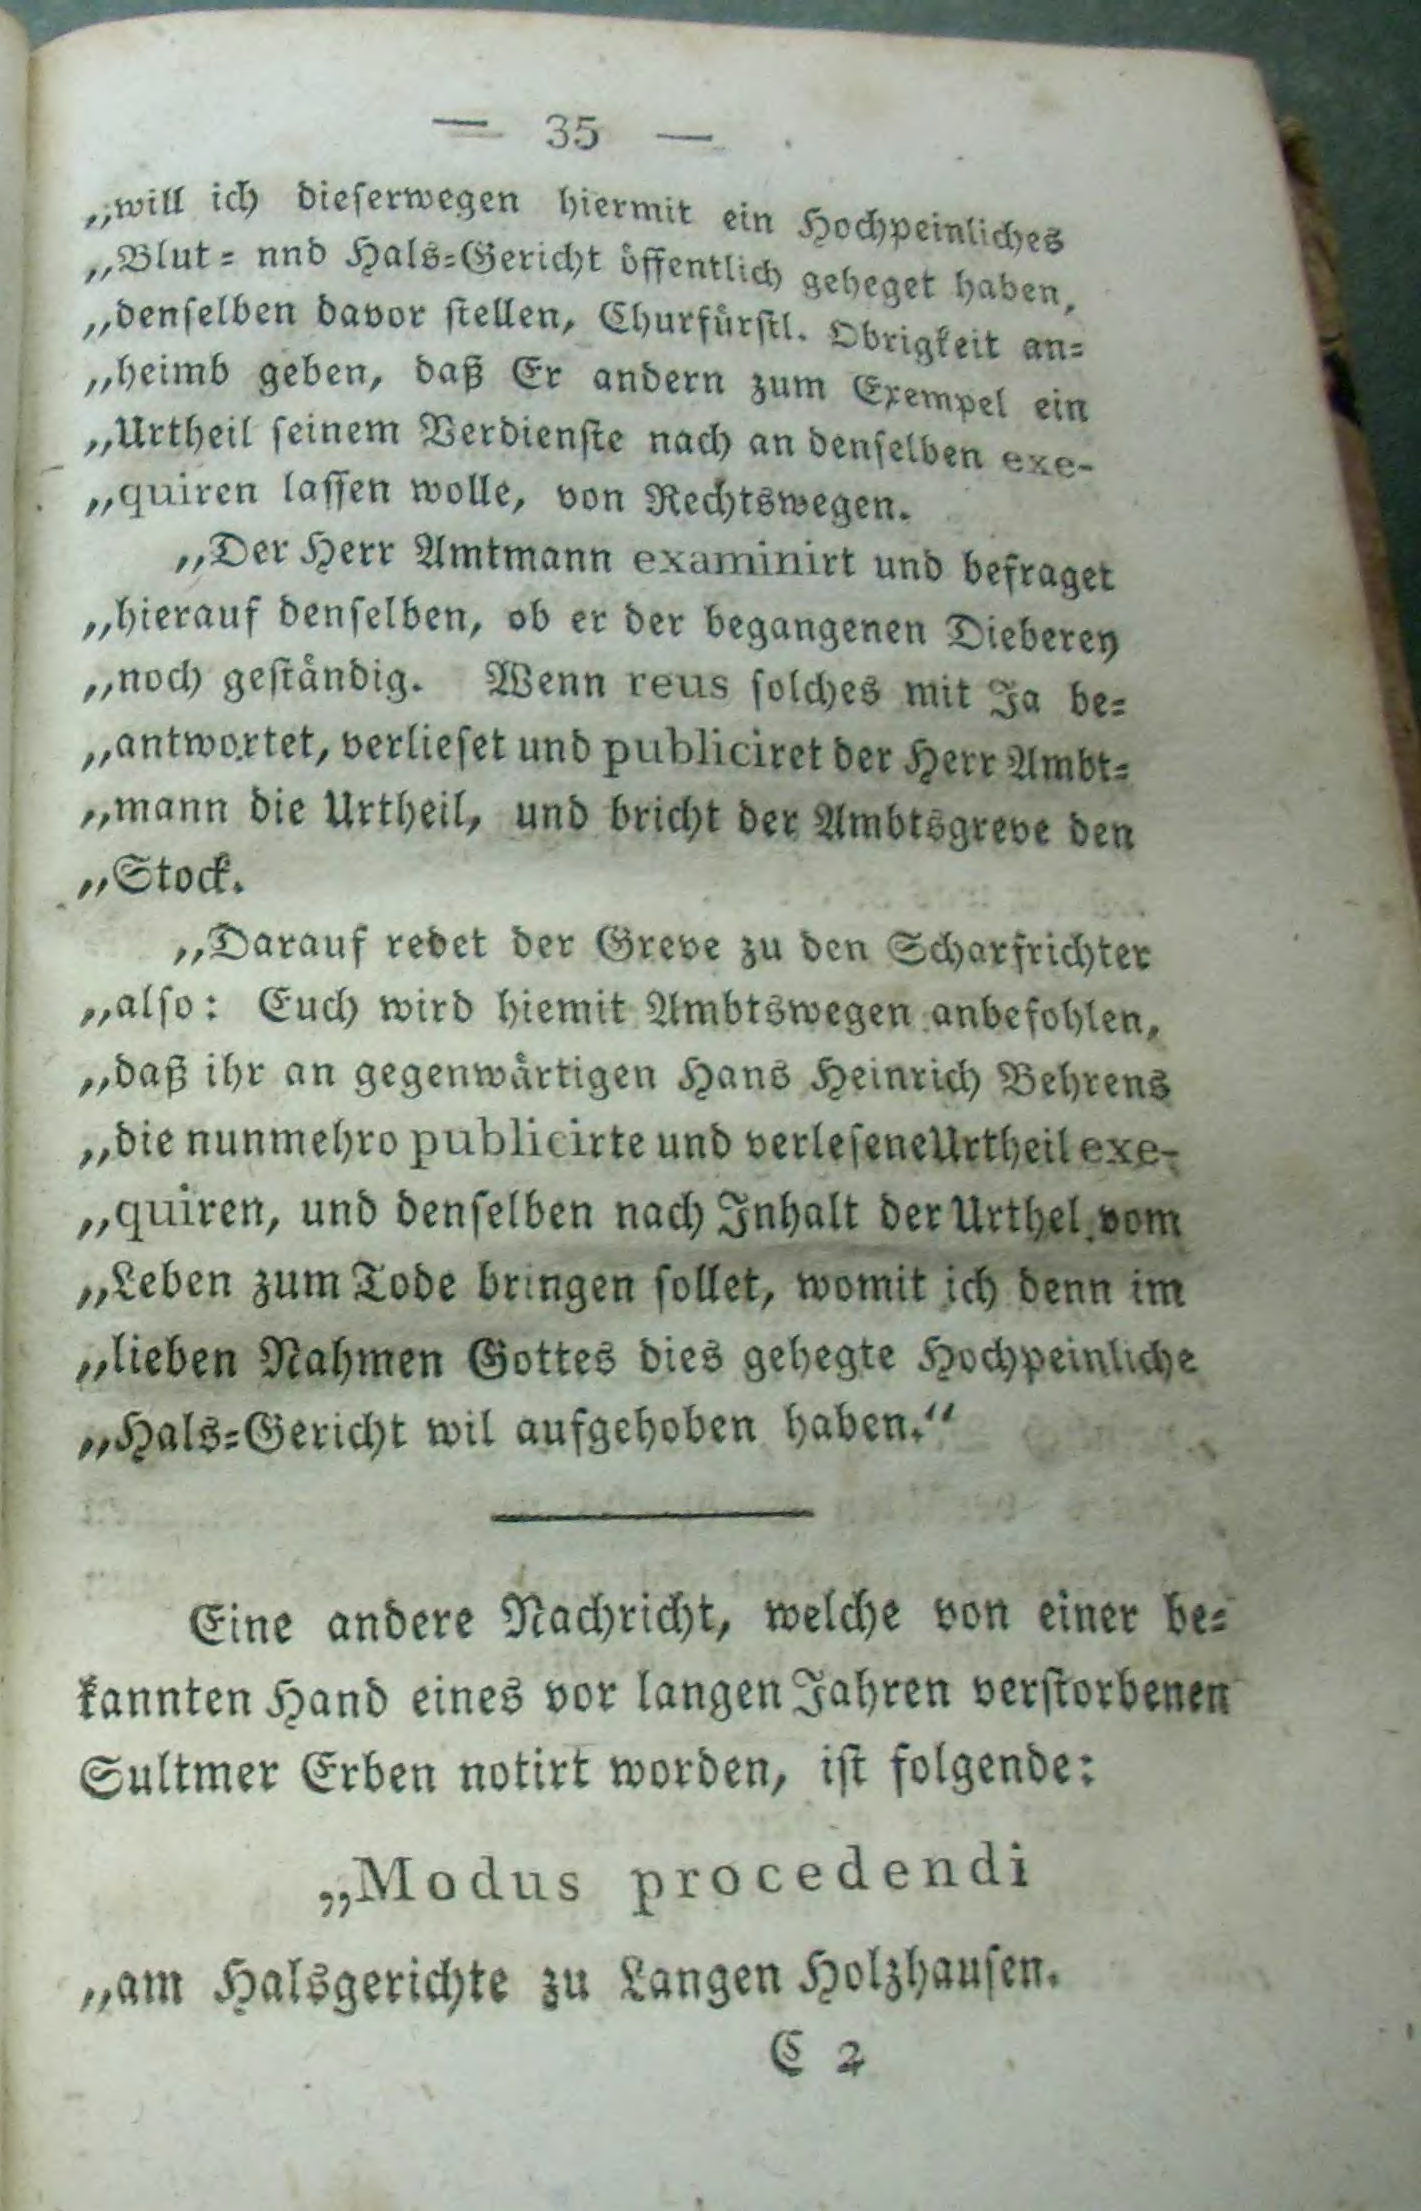 — 35 —
„will ich dieserwegen hiermit ein Hochpeinliches
„Blut= nnd Hals=Gericht öffentlich geheget haben,
„denselben davor stellen, Churfürstl. Obrigkeit an=
„heimb geben, daß Er andern zum Exempel ein
„Urtheil seinem Verdienste nach an denselben exe-
„quiren lassen wolle, von Rechtswegen.
„Der Herr Amtmann examinirt und befraget
„hierauf denselben, ob er der begangenen Dieberey
„noch geständig. Wenn reus solches mit Ja be=
„antwortet, verlieset und publiciret der Herr Ambt=
„mann die Urtheil, und bricht der Ambtsgreve den
„Stock.
„Darauf redet der Greve zu den Scharfrichter
„also: Euch wird hiemit Ambtswegen anbefohlen,
„daß ihr an gegenwärtigen Hans Heinrich Behrens
„die nunmehro publicirte und verlesene Urtheil exe-
„quiren, und denselben nach Inhalt der Urthel vom
„Leben zum Tode bringen sollet, womit ich denn im
„lieben Nahmen Gottes dies gehegte Hochpeinliche
„Hals=Gericht wil aufgehoben haben.“
Eine andere Nachricht, welche von einer be=
kannten Hand eines vor langen Jahren verstorbenen
Sultmer Erben notirt worden, ist folgende:
„Modus procedendi
„am Halsgerichte zu Langen Holzhausen.
C 2